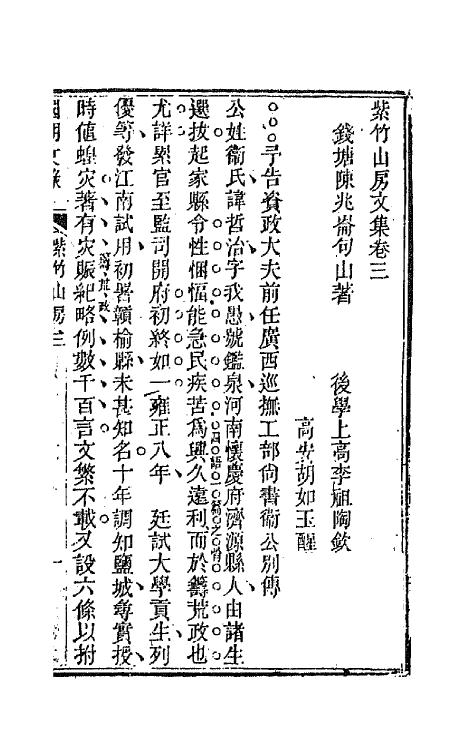 紫竹山房文集卷三
錢塘陳兆崙句山著
後學上高李祖陶欽
高安胡如玉醒
予告資政大夫前任廣西巡撫工部尚書衞公別傳
公姓衞氏諱哲治字我愚號鑑泉河南懷慶府濟源縣人由諸生
選拔起家縣令性悃愊能急民疾苦爲興久遠利而於籌荒政也
四語一篇之骨
尤詳累官至監司開府初終如一雍正八年 廷試大學貢生列
優等發江南試用初署贛榆縣未甚知名十年調知鹽城尋實授
時値蝗灾著有灾賑紀略例數千百言文繁不載又設六條以拊
籌荒政
國朝文錄 紫竹山房三 一